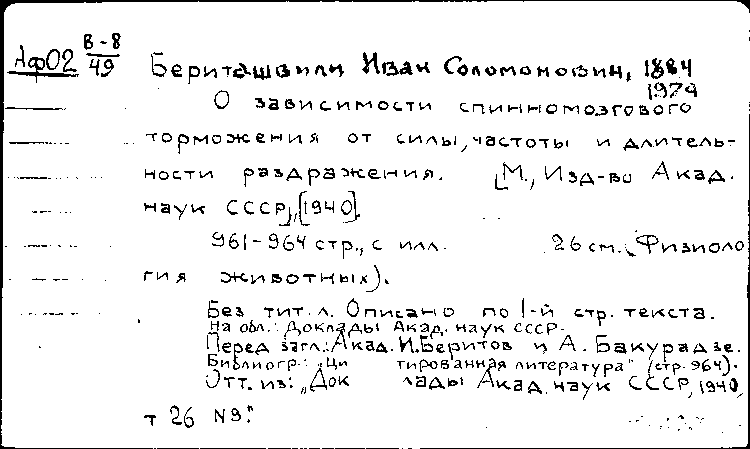 Аф02 В-8/49
Бериташвили Иван Соломонович, 1884
1974
О зависимости спинномозгового
торможения от силы, частоты и длитель-
ности раздражения. [М., Изд-во Акад.
наук СССР], [1940].
961-964 стр., с илл. 26 см. (Физиоло
гия животных).
Без тит. л. Описано по 1-й стр. текста.
На обл.: Доклады Акад. наук СССР.
Перед загл.: Акад. И. Беритов и А. Бакурадзе.
Библиогр.: "Цитированная литература" (стр. 964).
Отт. из: "Доклады Акад. наук СССР, 1940,
т 26 N9."